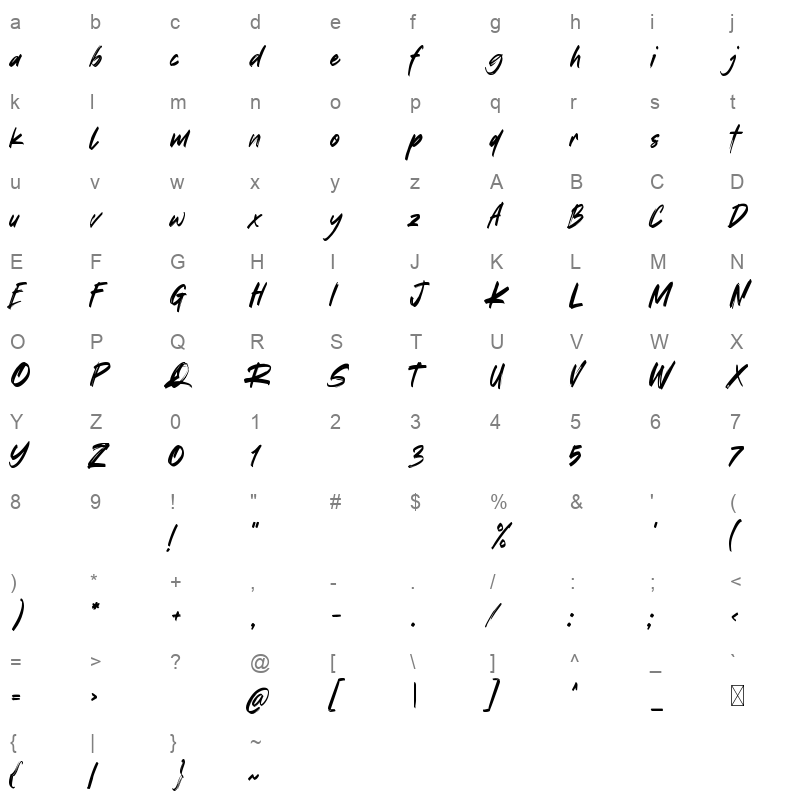 a b c d e f g h i j
a b c d e f g h i j
k l m n o p q r s t
k l m n o p q r s t
u v w x y z A B C D
u v w x y z A B C D
E F G H I J K L M N
E F G H I J K L M N
O P Q R S T U V W X
O P Q R S T U V W X
Y Z 0 1 2 3 4 5 6 7
Y Z 0 1 3 5 7
8 9 ! " # $ % & ' (
! " % ' (
) * + , - . / : ; <
) * + , - . / : ; <
= > ? @ [ \ ] ^ _ `
= > @ [ | ] ^ _
{ | } ~
{ | } ~